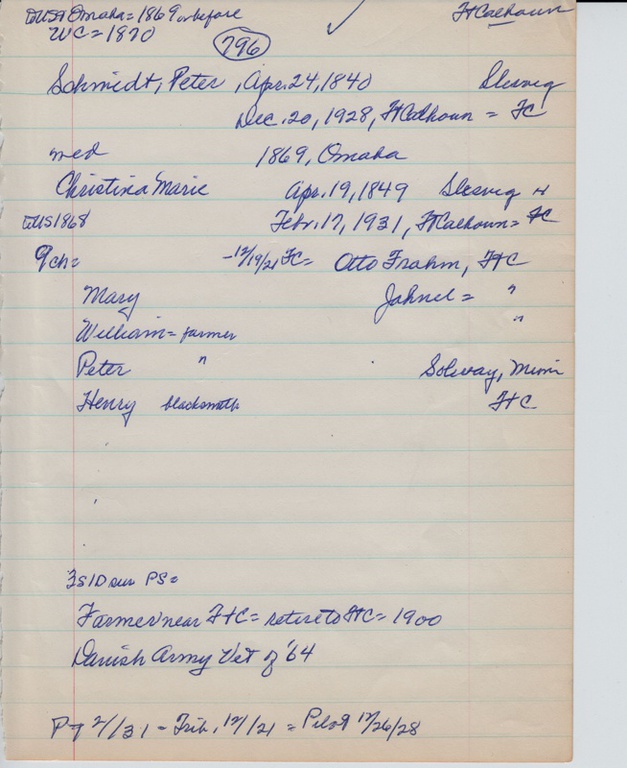 to USA Omaha = 1869 or before Ft Calhoun
WC = 1870
796
Schmidt, Peter, Apr. 24, 1840 Slesvig
Dec. 20, 1928, Ft Calhoun = FC
med 1869, Omaha
Christina Marie Apr. 19, 1849 Slesvig
to US 1868 Febr. 17, 1931, Ft Calhoun = FC
9 ch = - 12/19/21 FC = Otto Frahm, FtC
Mary Jahnel = "
William = farmer "
Peter " Solway, Minn
Henry blacksmith FtC
3s 1D sur PS =
Farmer near FtC = retire to FtC = 1900
Danish Army Vet of '64
2/31 - Trib, 12/21 = Pilot 12/26/28